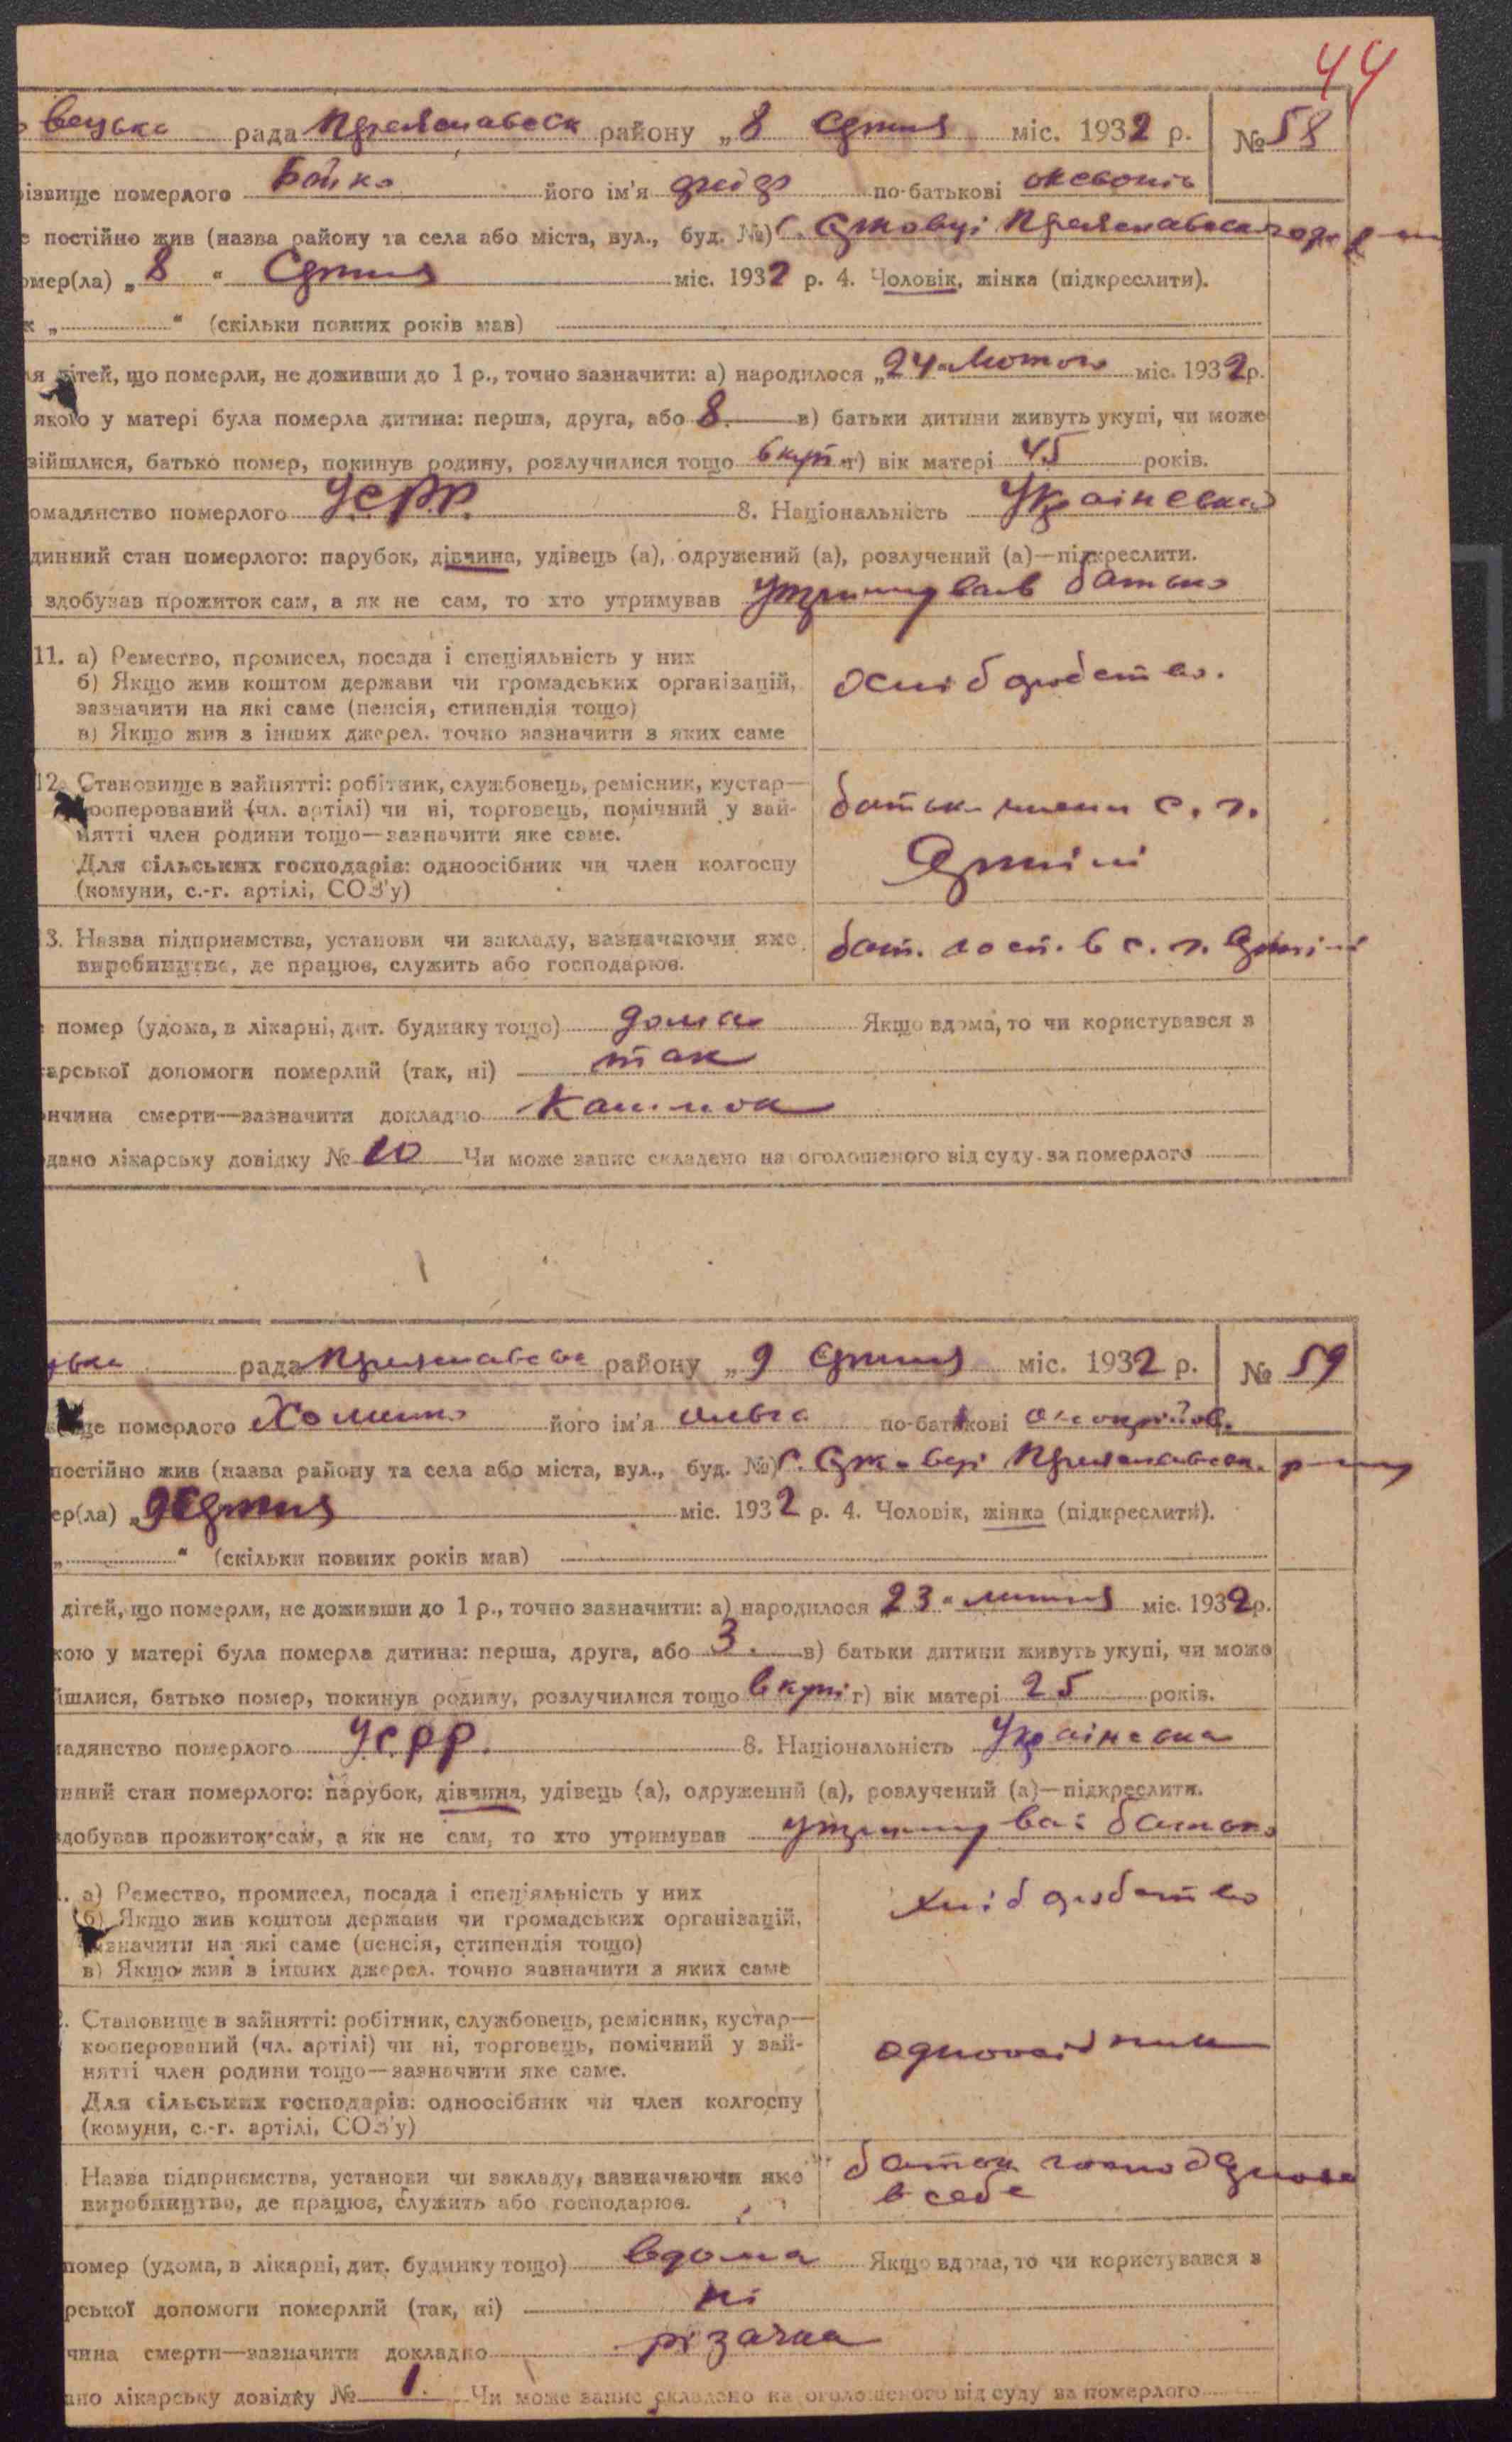 44
рада району „8 міс. 1932 р. № 58
різвище померлого Бойко його ім'я по-батькові
е постійно жив (назва району та села або міста, вул., буд. №) с.
омер(ла) „8“ міс. 1932 р. 4. Чоловік, жінка (підкреслити).
к „ “ (скільки повних років мав)
ля дітей, що померли, не доживши до 1 р., точно зазначити: а) народилося „24“ Лютого міс. 1932 р.
якою у матері була померла дитина: перша, друга, або 8. в) батьки дитини живуть укупі, чи може
зійшлися, батько помер, покинув родину, розлучилися тощо вкупі г) вік матері 45 років.
омадянство померлого УСРР. 8. Національність Українська
динний стан померлого: парубок, дівчина, удівець (а), одружений (а), розлучений (а)—підкреслити.
здобував прожиток сам, а як не сам, то хто утримував утримував батько
11. а) Ремество, промисел, посада і спеціяльність у них
б) Якщо жив коштом держави чи громадських організацій,
зазначити на які саме (пенсія, стипендія тощо)
в) Якщо жив з інших джерел. точно зазначити з яких саме
12. Становище в зайнятті: робітник, службовець, ремісник, кустар—
кооперований (чл. артілі) чи ні, торговець, помічний у зай-
нятті член родини тощо—зазначити яке саме.
Для сільських господарів: одноосібник чи член колгоспу
(комуни, с.-г. артілі, СОЗ'у)
батько член с. г.
Артілі
3. Назва підприємства, установи чи закладу, зазначаючи яке
виробництво, де працює, служить або господарює.
бат. в с. г. Артілі
помер (удома, в лікарні, дит. будинку тощо) дома Якщо вдома, то чи користувався з
карської допомоги померлий (так, ні) так
ичина смерти—зазначити докладно Кашлюк
одано лікарську довідку № 10 Чи може запис складено на оголошеного від суду за померлого
рада району „9 міс. 1932 р. № 59
ще померлого його ім'я Ольга по-батькові
постійно жив (назва району та села або міста, вул., буд. №) с.
ер(ла) „9 міс. 1932 р. 4. Чоловік, жінка (підкреслити).
„ “ (скільки повних років мав)
дітей, що померли, не доживши до 1 р., точно зазначити: а) народилося 23“ липня міс. 1932 р.
кою у матері була померла дитина: перша, друга, або 3. в) батьки дитини живуть укупі, чи може
йшлися, батько помер, покинув родину, розлучилися тощо вкупі г) вік матері 25 років.
мадянство померлого УСРР. 8. Національність Українська
инний стан померлого: парубок, дівчина, удівець (а), одружений (а), розлучений (а)—підкреслити.
здобував прожиток сам, а як не сам, то хто утримував утримував батько
. а) Ремество, промисел, посада і спеціяльність у них
б) Якщо жив коштом держави чи громадських організацій,
зазначити на які саме (пенсія, стипендія тощо)
в) Якщо жив з інших джерел. точно зазначити з яких саме
хліборобство
. Становище в зайнятті: робітник, службовець, ремісник, кустар—
кооперований (чл. артілі) чи ні, торговець, помічний у зай-
нятті член родини тощо—зазначити яке саме.
Для сільських господарів: одноосібник чи член колгоспу
(комуни, с.-г. артілі, СОЗ'у)
одноосібник
Назва підприємства, установи чи закладу, зазначаючи яке
виробництво, де працює, служить або господарює.
в себе
помер (удома, в лікарні, дит. будинку тощо) вдома Якщо вдома, то чи користувався з
рської допомоги померлий (так, ні) ні
чина смерти—зазначити докладно різачка
ано лікарську довідку № 1. Чи може запис складено на оголошеного від суду за померлого